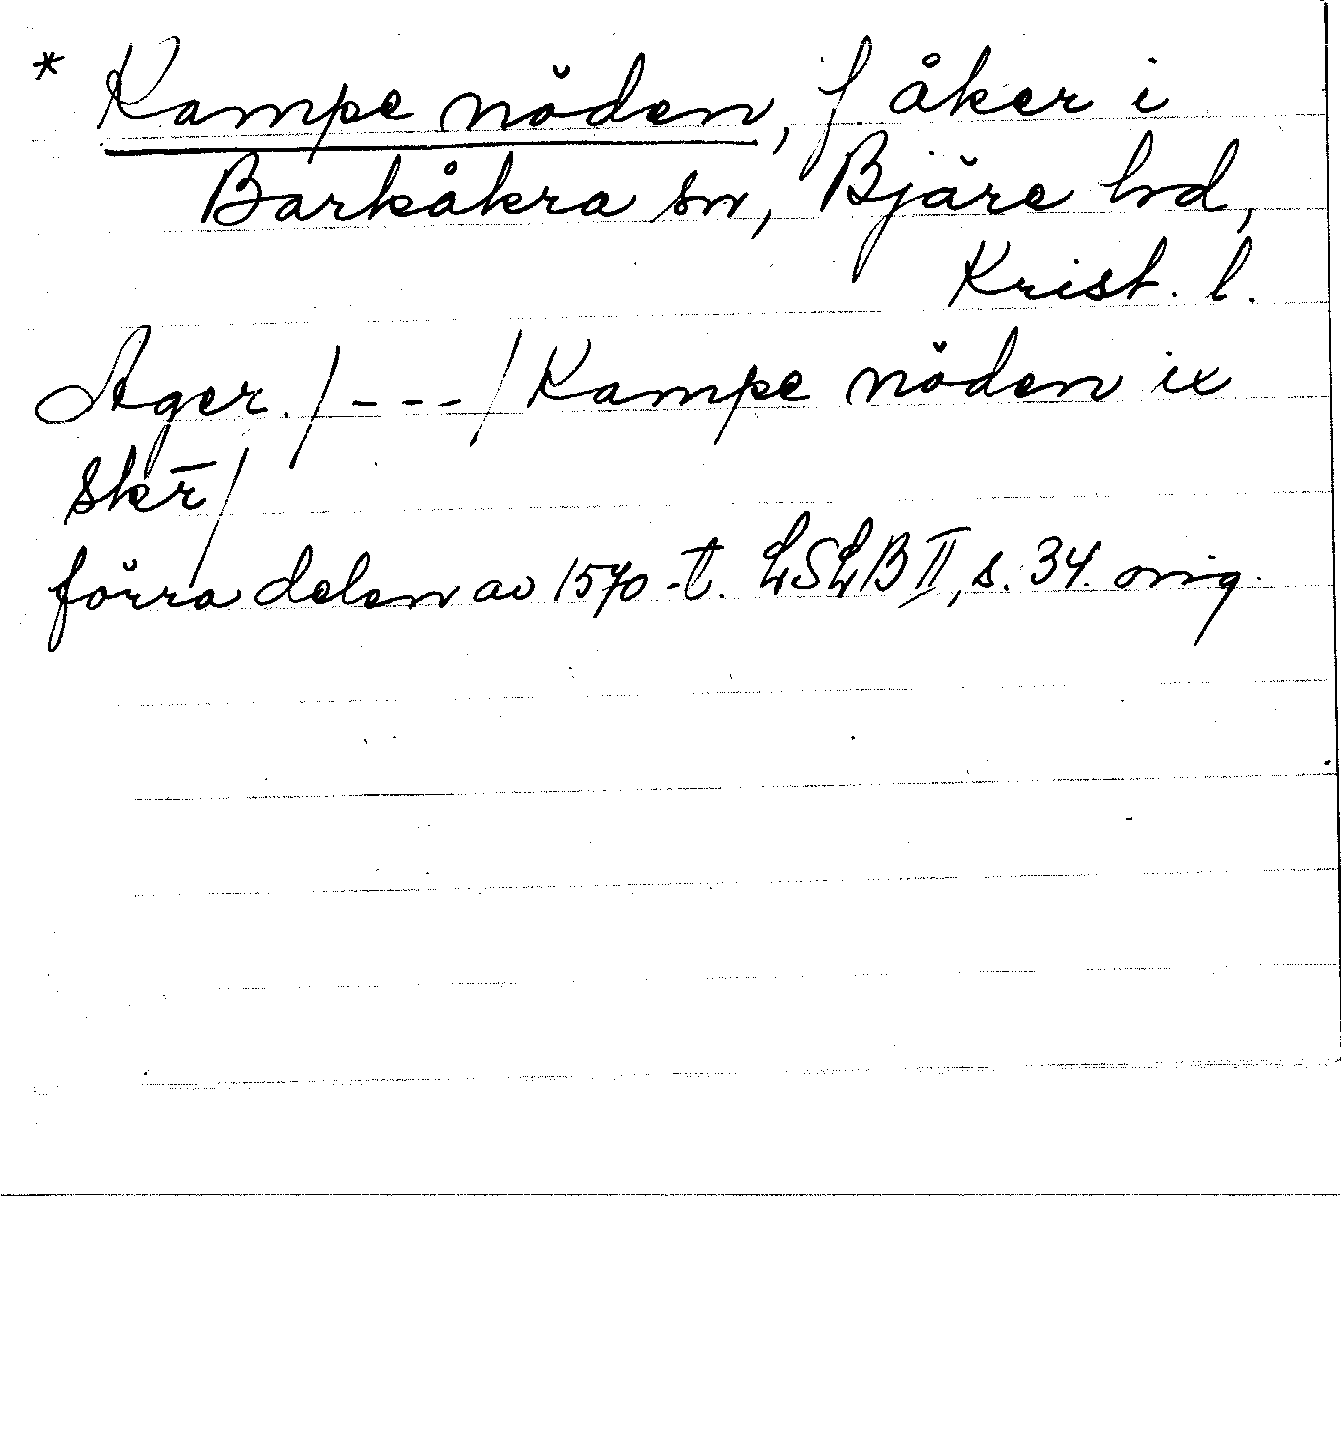 * Kampe nöden, f. åker i
Barkåkra sn, Bjäre hd,
Krist. l.
Ager. /---/ Kampe nöden ix
skr̄/
förra delen av 1570-t. LSLB II, s. 34. orig.